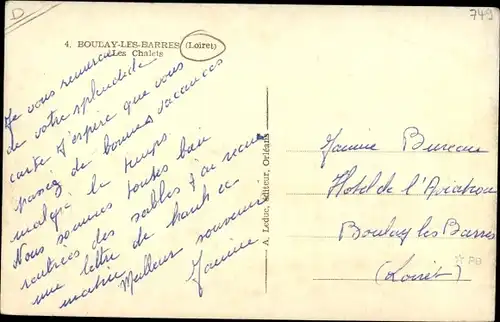 D
749
4. BOULAY-LES-BARRES (Loiret)
Les Chalets
Je vous remercie
de votre splendide
carte J'espère que vous
passez de bonnes vacances
malgré le temps.
Nous sommes toutes bien
rentrées des sables J'ai recue
une lettre de haut ce
matin
Meilleur souvenir
Janine
A. Leduc, Editeur, Orléans
Janine Bureau
Hotel de l'Aviation
Boulay les Barres
(Loiret)
PB